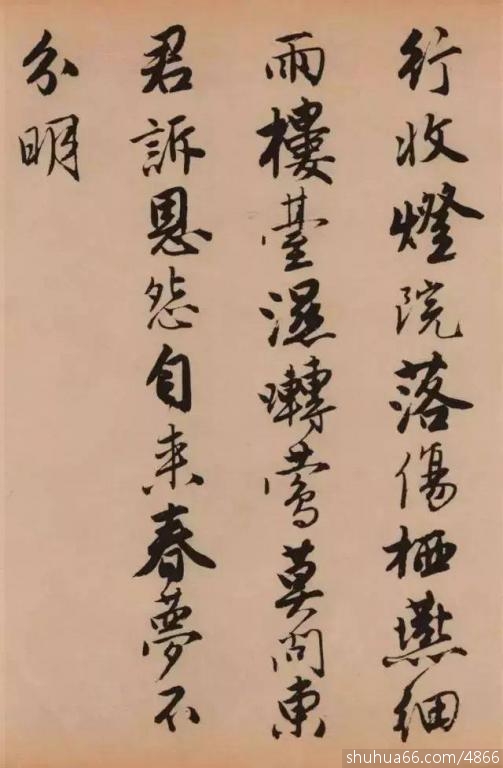 行收燈院落傷栖燕細
雨樓臺濕囀鶯莫問東
君訴恩怨自来春夢不
分明
shuhua66.com/4866